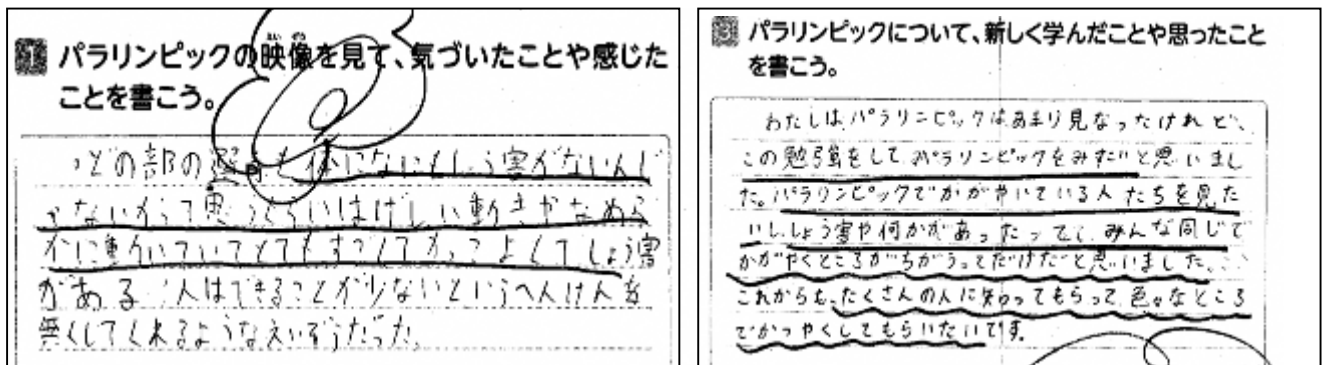 パラリンピックの映像を見て、気づいたことや感じた
ことを書こう。
どの部の選手も体になにもしょう害がないんじ
ゃないかって思うぐらいはげしい動きやなめら
かに動いていてとてもすごくてかっこよくてしょう害
がある人はできることが少ないというへんけんを
無くしてくれるようなえいぞうだった。
3 パラリンピックについて、新しく学んだことや思ったこと
を書こう。
わたしは、パラリンピックはあまり見なかったけれど、
この勉強をして、パラリンピックをみたいと思いまし
た。パラリンピックでかがやいている人たちを見た
いし、しょう害や何かがあったって、みんな同じで
かがやくところがちがうってだけだと思いました。
これからも、たくさんの人に知ってもらって、色々なところ
でかつやくしてもらいたいです。